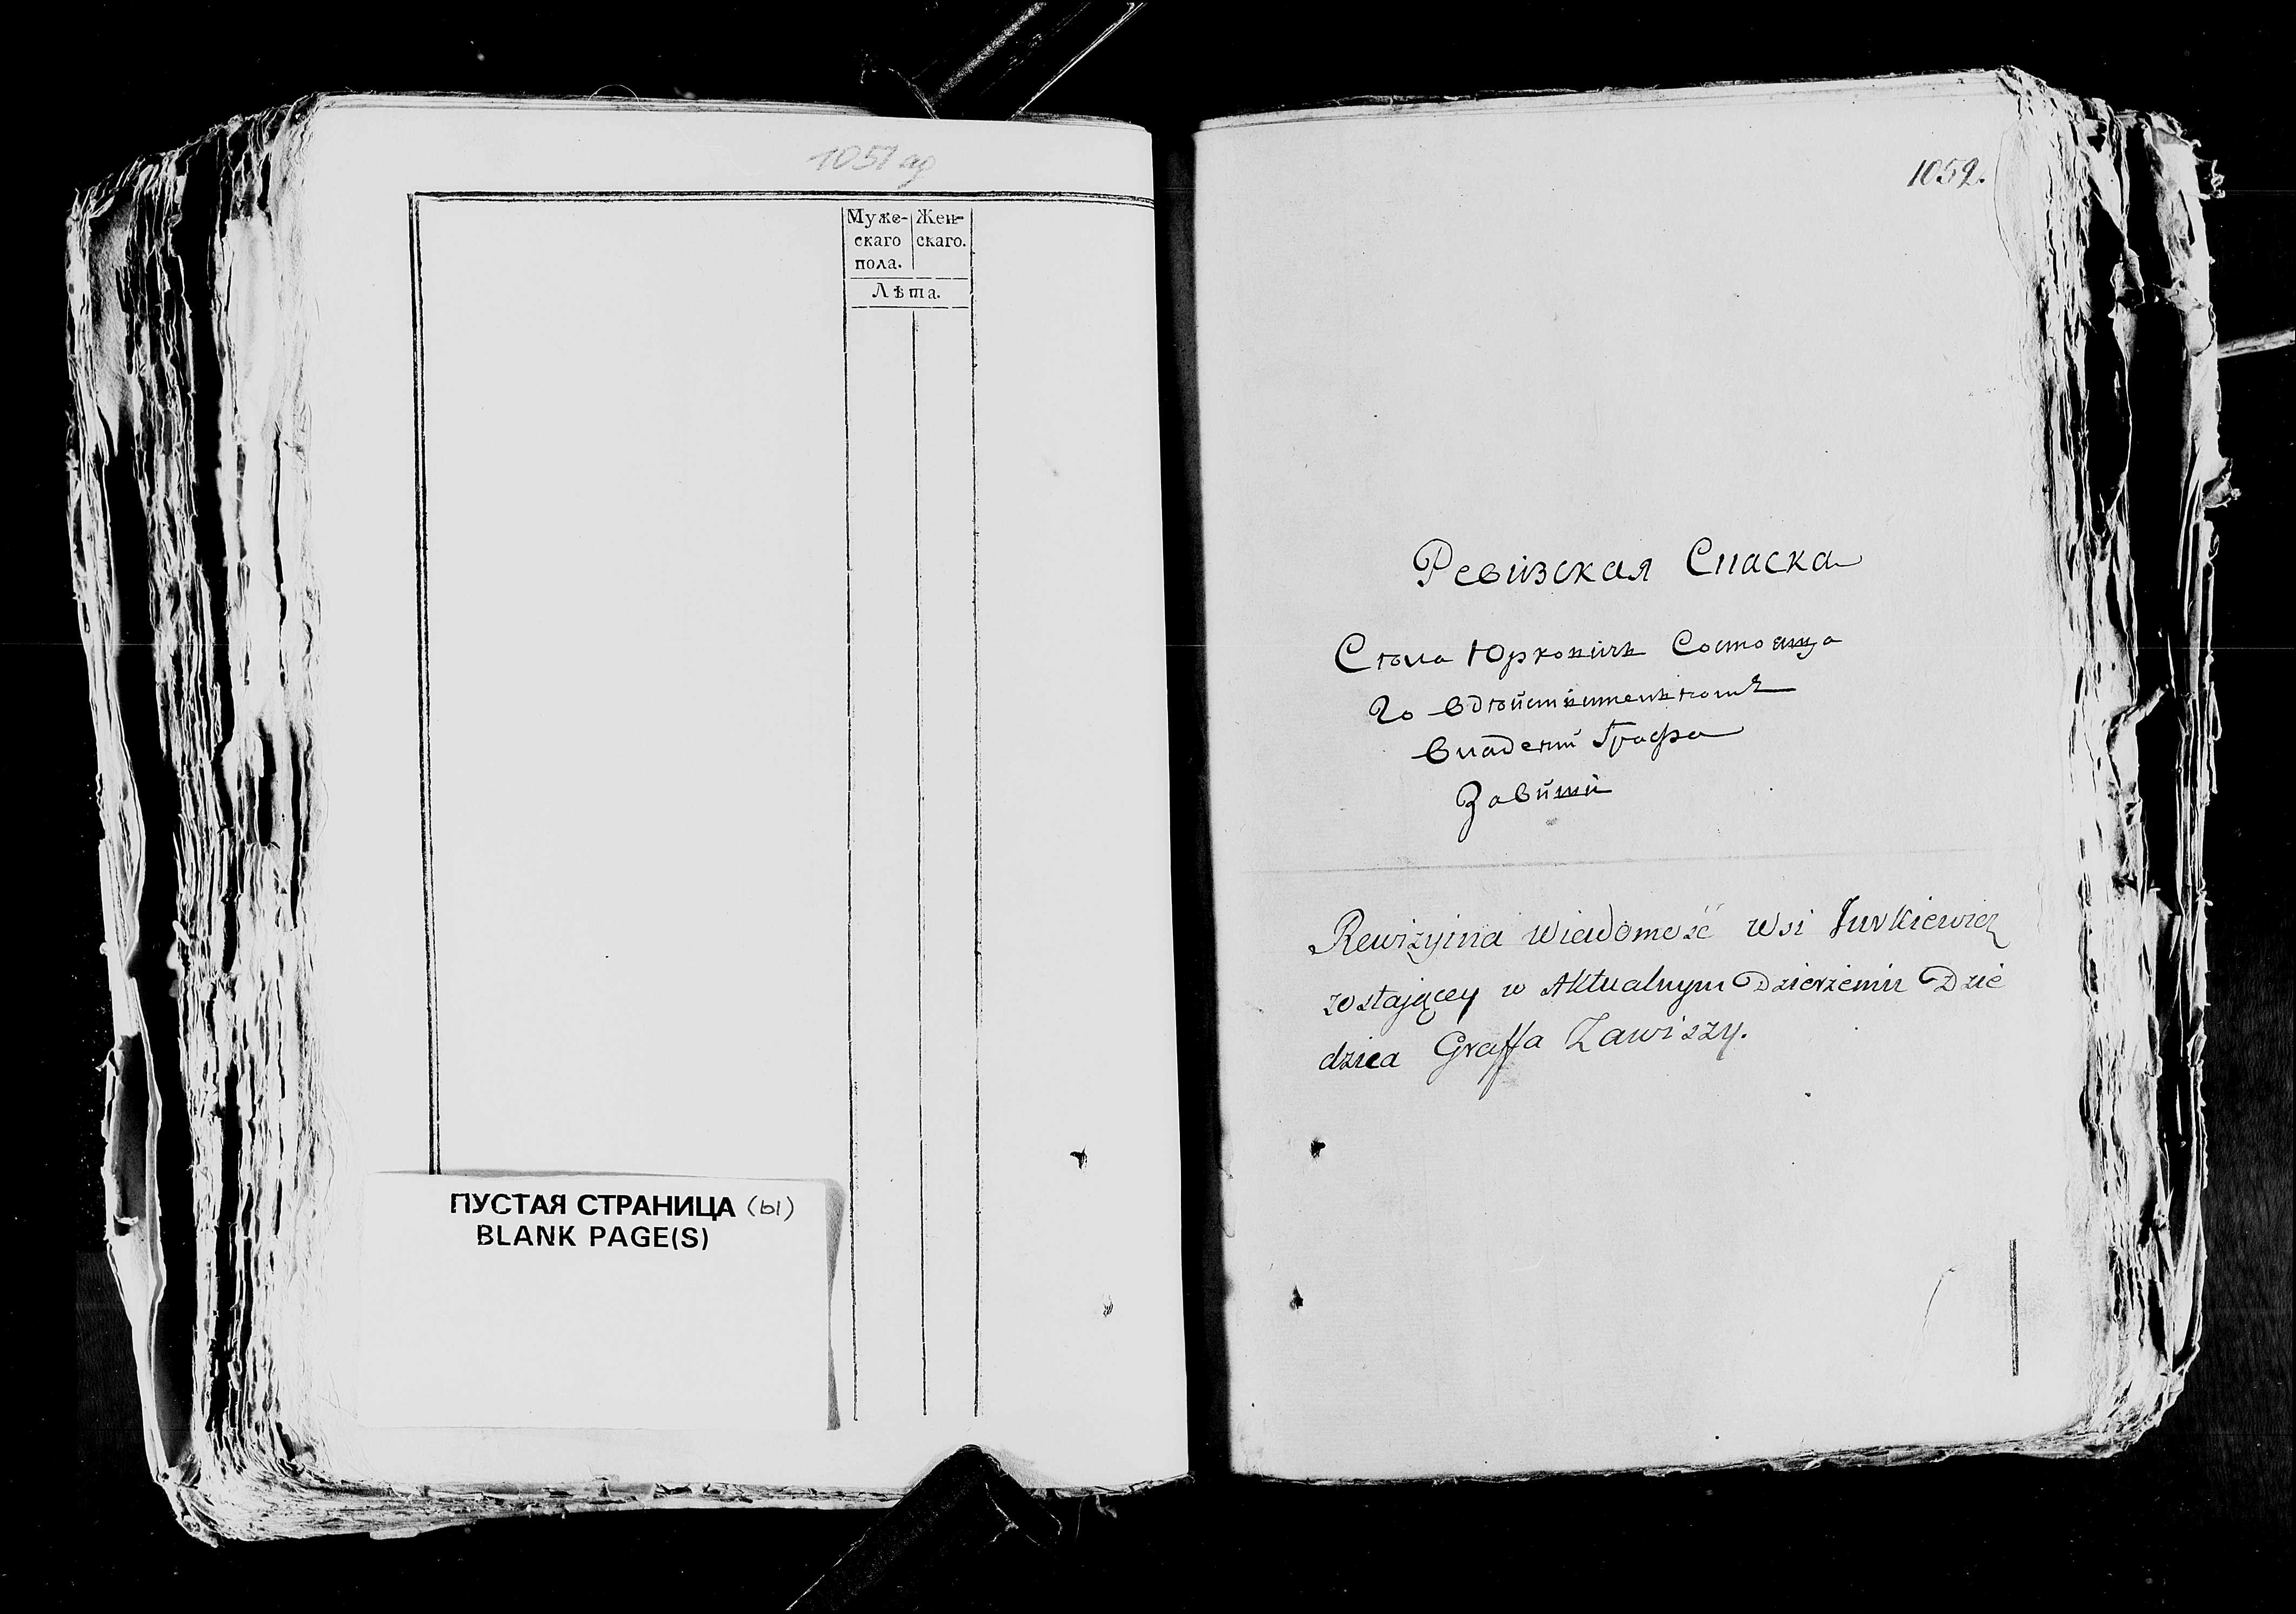 1051 ag
Муже- Жен-
скаго скаго.
пола.
Лѣта.
ПУСТАЯ СТРАНИЦА (ы)
BLANK PAGE(S)
1052.
Ревизская Снаска
Села Юрковичь Состояща
го вдѣйствителномъ
владении Графа
Завиши
Rewizyina wiadomość wsi Jurkiewicz
zostającey w Aktualnym Dzierżeniu Dzie
dzica Graffa Zawiszy.